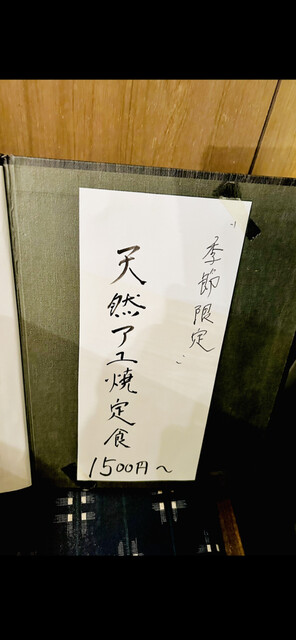 季節限定
天然アユ焼定食
1500円〜